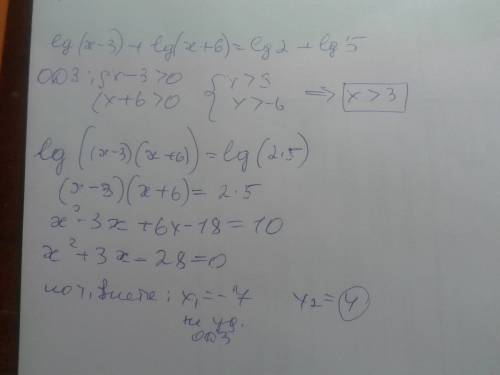 lg(x-3)+lg(x+6)=lg2+lg5
ОДЗ: { x-3>0 { x>3 ⇒ x>3
x+6>0 x>-6
lg((x-3)(x+6))=lg(2·5)
(x-3)(x+6)=2·5
x²-3x+6x-18=10
x²+3x-28=0
по т. Виета: x₁=-7 x₂=4
не уд.
ОДЗ